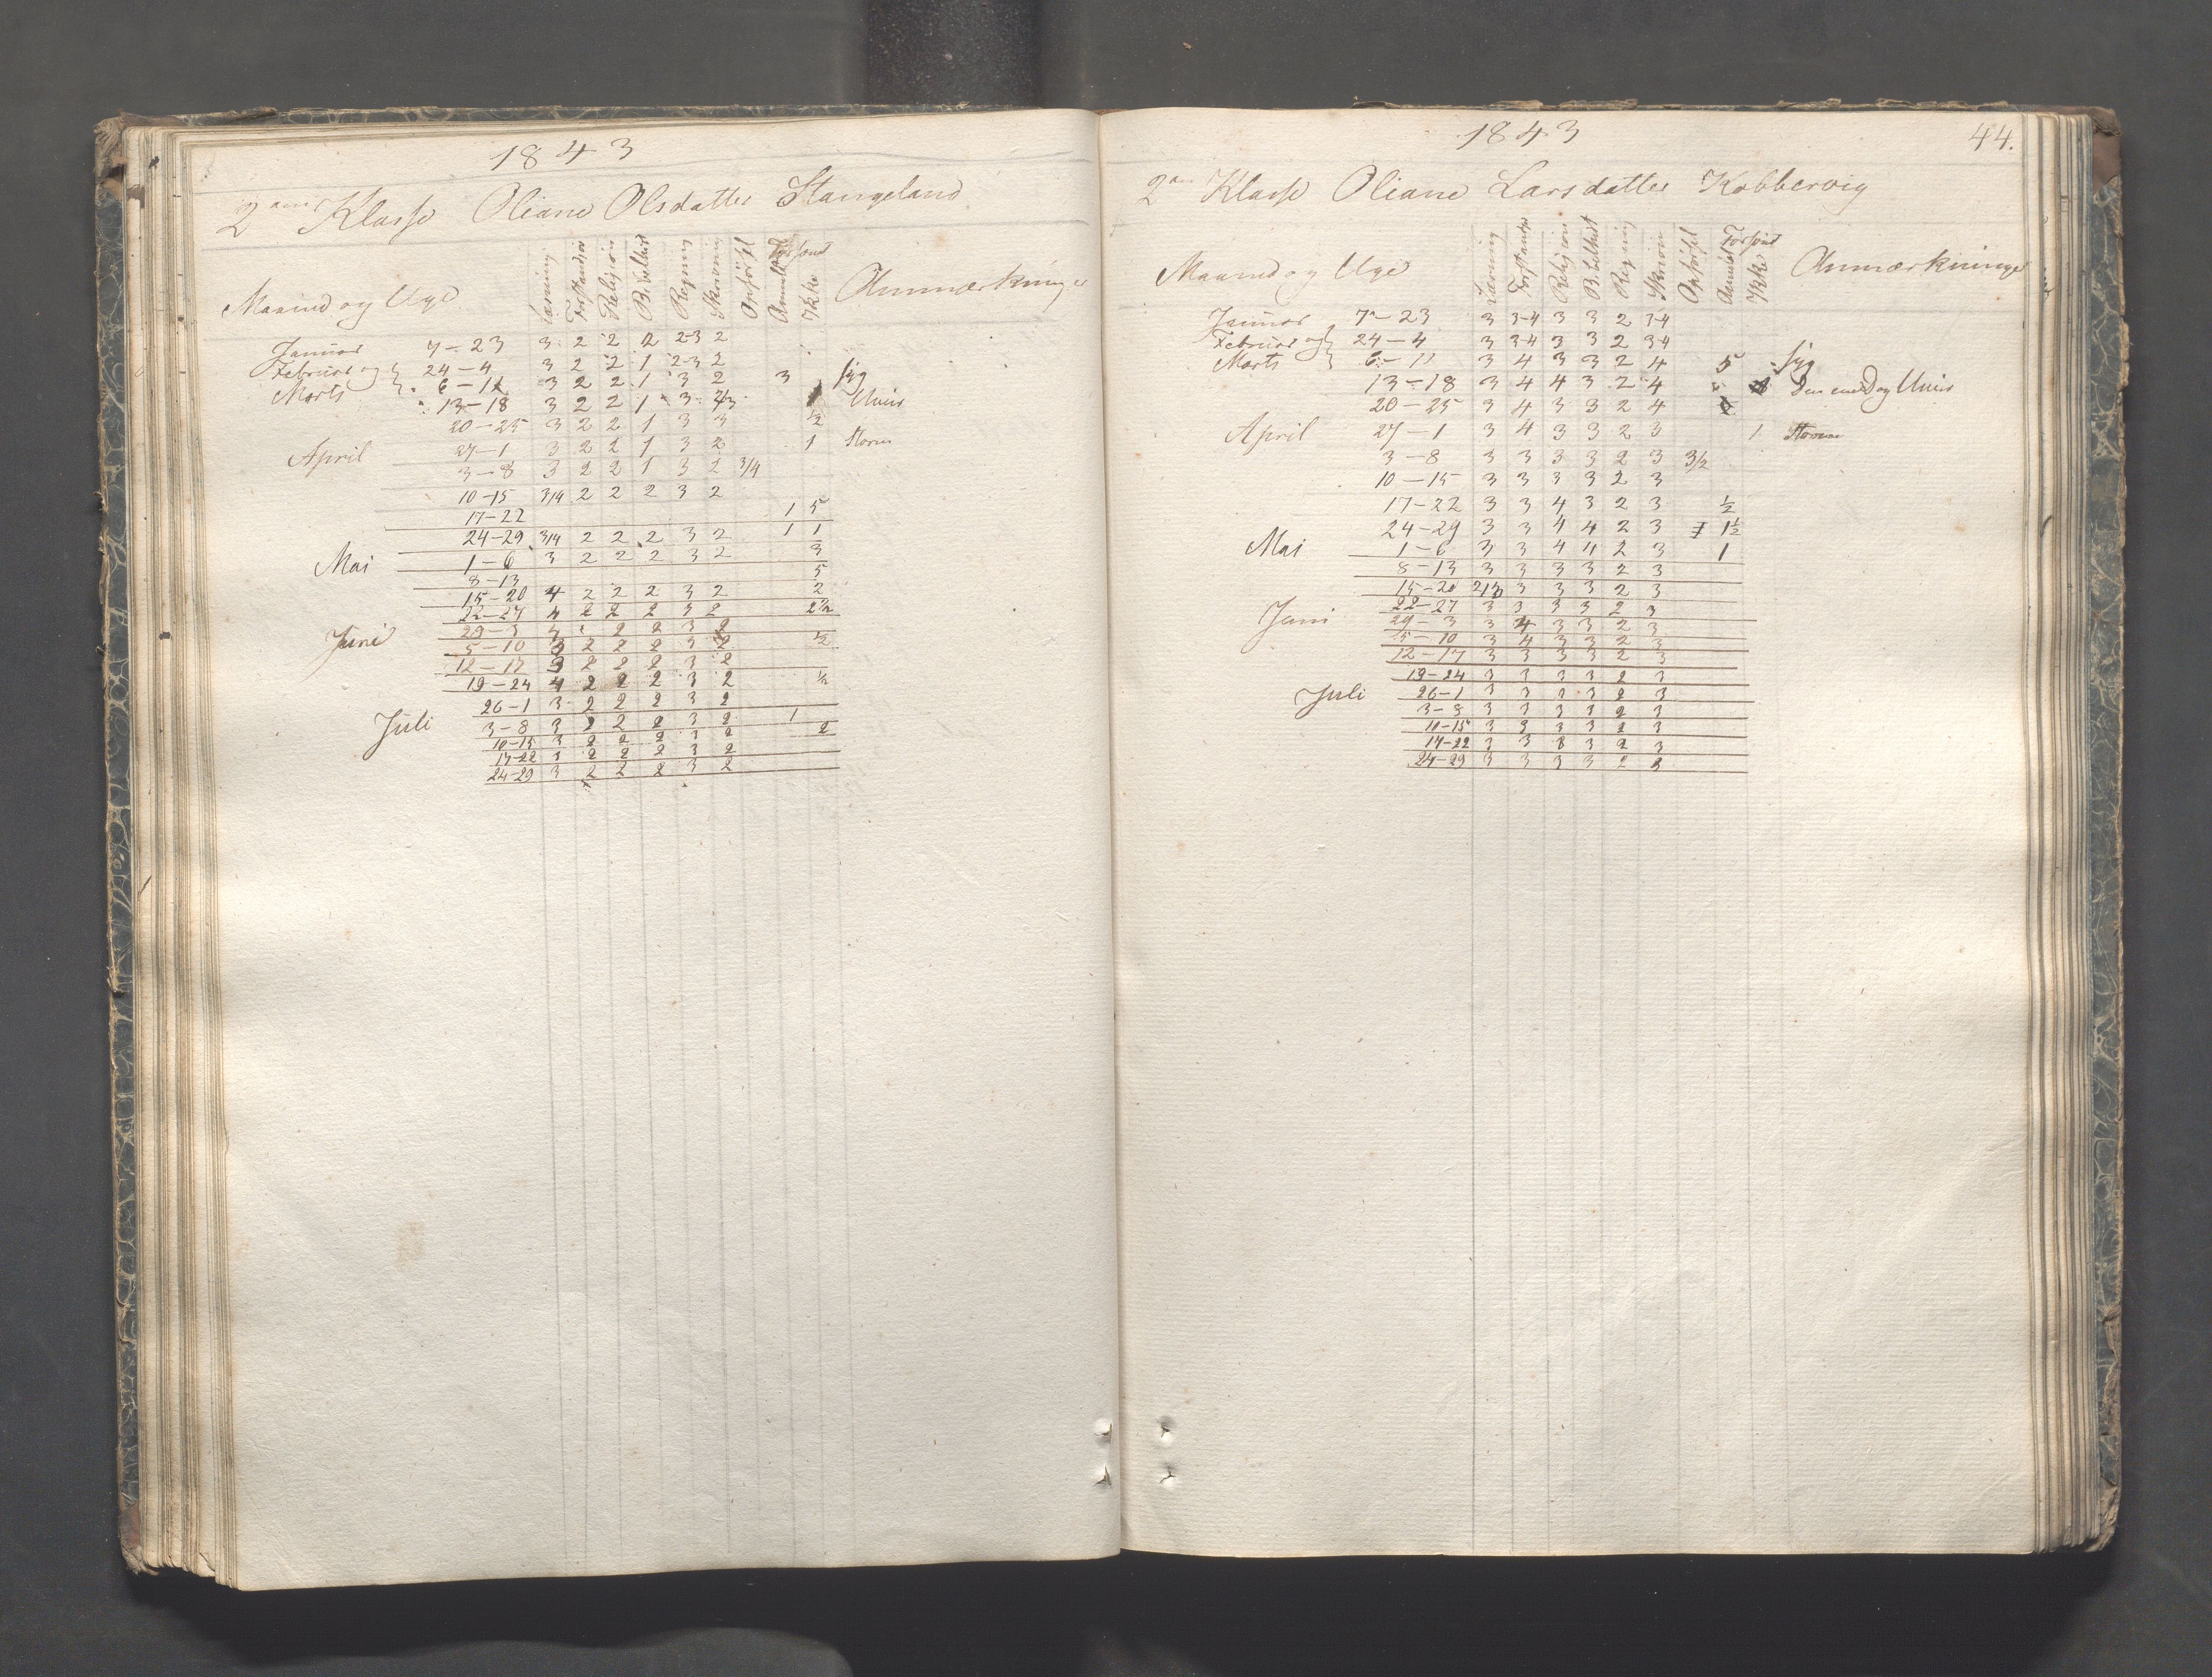 1843
2den Klasse Oliane Olsdatter Stangeland
Maaned og Uge Læsning Forstand Religion Regning Skrivning Opførsel Anmeldt Ikke Forsømt Anmærkninger
Januar 7-23 3 2 2 2 2-3 2
Februar og 24-4 3 2 2 1 2-3 2
Marts 6-11 3 2 2 1 3 2 3 syg
13-18 3 2 2 1 3 1
20-25 3 2 2 1 3 3 1/2
April 27-1 3 2 2 1 3 2 1 Storm
3-8 3 2 2 1 3 2 3/4
10-15 3/4 2 2 2 3 2
17-22 1 5
24-29 3/4 2 2 2 3 2 1 1
Mai 1-6 3 2 2 2 3 2 3
8-13 5
15-20 4 2 2 2 3 2 2
22-27 4 2 2 2 3 2 2 1/2
Juni 29-3 2 2 3 2
5-10 3 2 2 2 3 2 1/2
12-17 3 2 2 2 3 2
19-24 4 2 2 2 3 2 1/2
26-1 3 2 2 2 3 2
Juli 3-8 3 2 2 2 3 2 1
10-15 3 2 2 2 3 2 2
17-22 3 2 2 2 3 2
24-29 3 2 2 2 3 2
1843 44.
2den Klasse Oliane Larsdatter Kobbervig
Maaned og Uge Læsning Forstand Religion Regning Opførsel Anmeldt Ikke Forsømt Anmærkninger
Januar 7-23 3 3-4 3 3 2 3-4
Februar og 24-4 3 3-4 3 3 2 3-4
Marts 6-11 3 4 3 3 2 4 5 syg
13-18 3 4 4 3 2 4 Den ene Dag
20-25 3 4 3 3 2 4
April 27-1 3 4 3 3 2 3 1 Storm
3-8 3 3 3 3 2 3 3/2
10-15 3 3 3 3 2 3
17-22 3 3 4 3 2 3 1/2
24-29 3 3 4 4 2 3 1 1/2
Mai 1-6 3 3 4 4 2 3 1
8-13 3 3 3 3 2 3
15-20 2/3 3 3 3 2 3
22-27 3 3 3 3 2 3
Juni 29-3 3 4 3 3 2 3
5-10 3 4 3 3 2 3
12-17 3 3 3 3 2 3
19-24 3 3 3 3 2 3
Juli 26-1 3 3 3 3 2 3
3-8 3 3 3 3 2 3
10-15 3 3 3 3 2 3
17-22 3 3 3 3 2 3
24-29 3 3 3 3 2 3